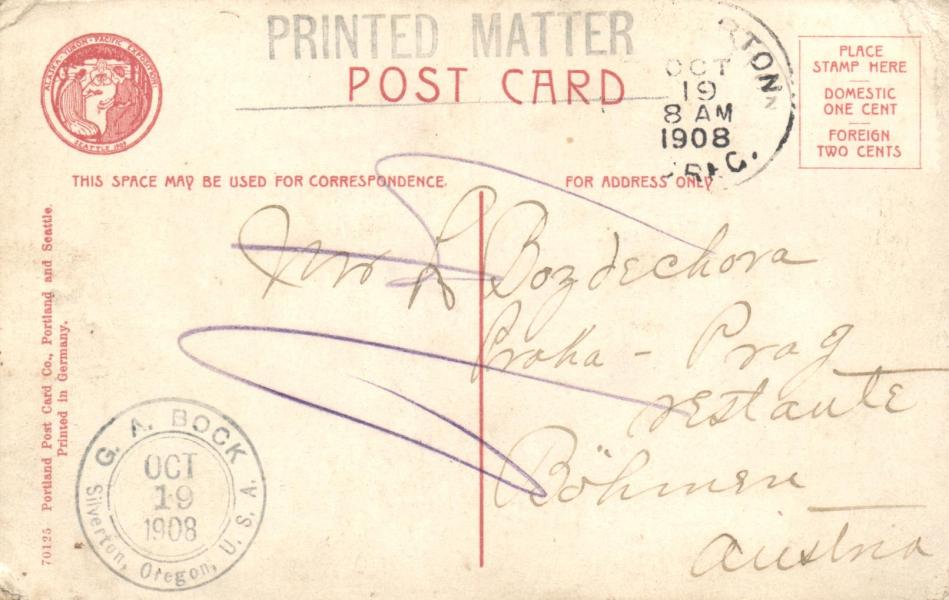 PRINTED MATTER
POST CARD
ALASKA-YUKON-PACIFIC EXPOSITION
SEATTLE 1909
RTON
OCT
19
8 AM
1908
PLACE
STAMP HERE
DOMESTIC
ONE CENT
FOREIGN
TWO CENTS
THIS SPACE MAY BE USED FOR CORRESPONDENCE.
FOR ADDRESS ONLY
L Bozdechova
Praha - Prag
restante
Böhmen
Austria
70125 Portland Post Card Co., Portland and Seattle.
Printed in Germany.
G. A. BOCK
OCT
19
1908
Silverton, Oregon, U. S. A.